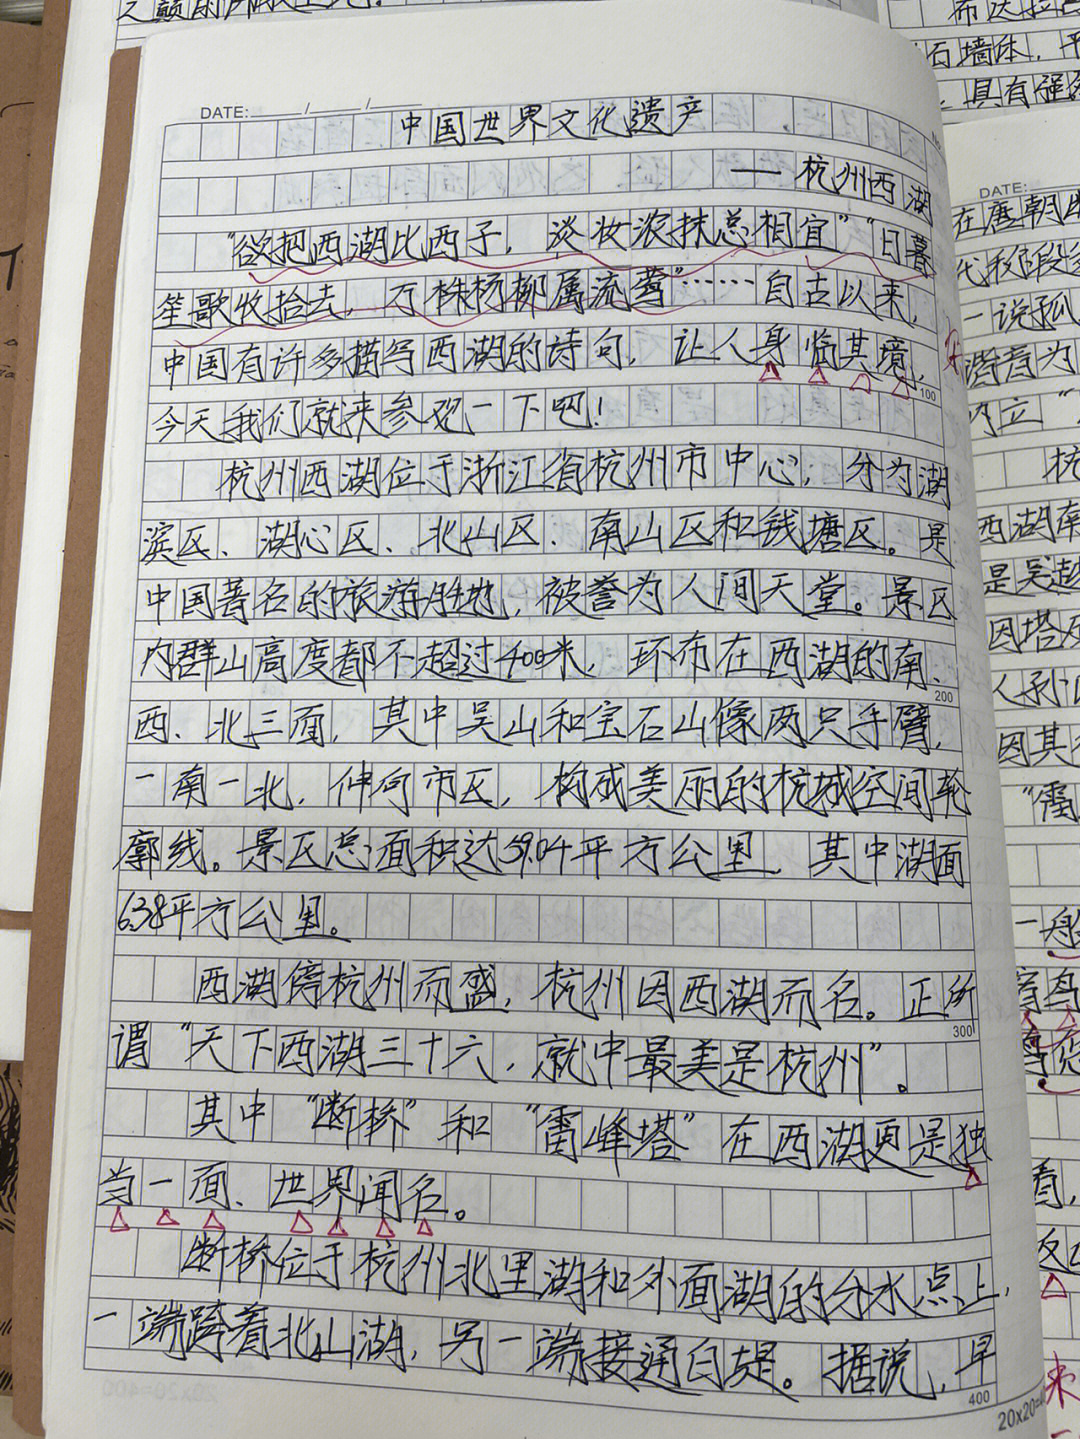 DATE: / /
中国世界文化遗产
——杭州西湖
“欲把西湖比西子，淡妆浓抹总相宜”“日暮
笙歌收拾去，万株杨柳属流莺”……自古以来，
中国有许多描写西湖的诗句，让人身临其境，
100
今天我们就来参观一下吧！
杭州西湖位于浙江省杭州市中心；分为湖
滨区、湖心区、北山区、南山区和钱塘区。是
中国著名的旅游胜地，被誉为人间天堂。景区
内群山高度都不超过400米，环布在西湖的南、
200
西、北三面，其中吴山和宝石山像两只手臂，
一南一北，伸向市区，构成美丽的杭城空间轮
廓线。景区总面积达59.04平方公里，其中湖面
6.38平方公里。
西湖傍杭州而盛，杭州因西湖而名。正所
300
谓“天下西湖三十六，就中最美是杭州”。
其中“断桥”和“雷峰塔”在西湖更是独
当一面、世界闻名。
断桥位于杭州北里湖和外面湖的分水点上，
一端跨着北山湖，另一端接通白堤。据说，早
400
20x20=
DATE:
石墙体，平
具有强
在唐朝
一说孤
内立“
杭
西湖南
是吴越
因塔
因其
“雷